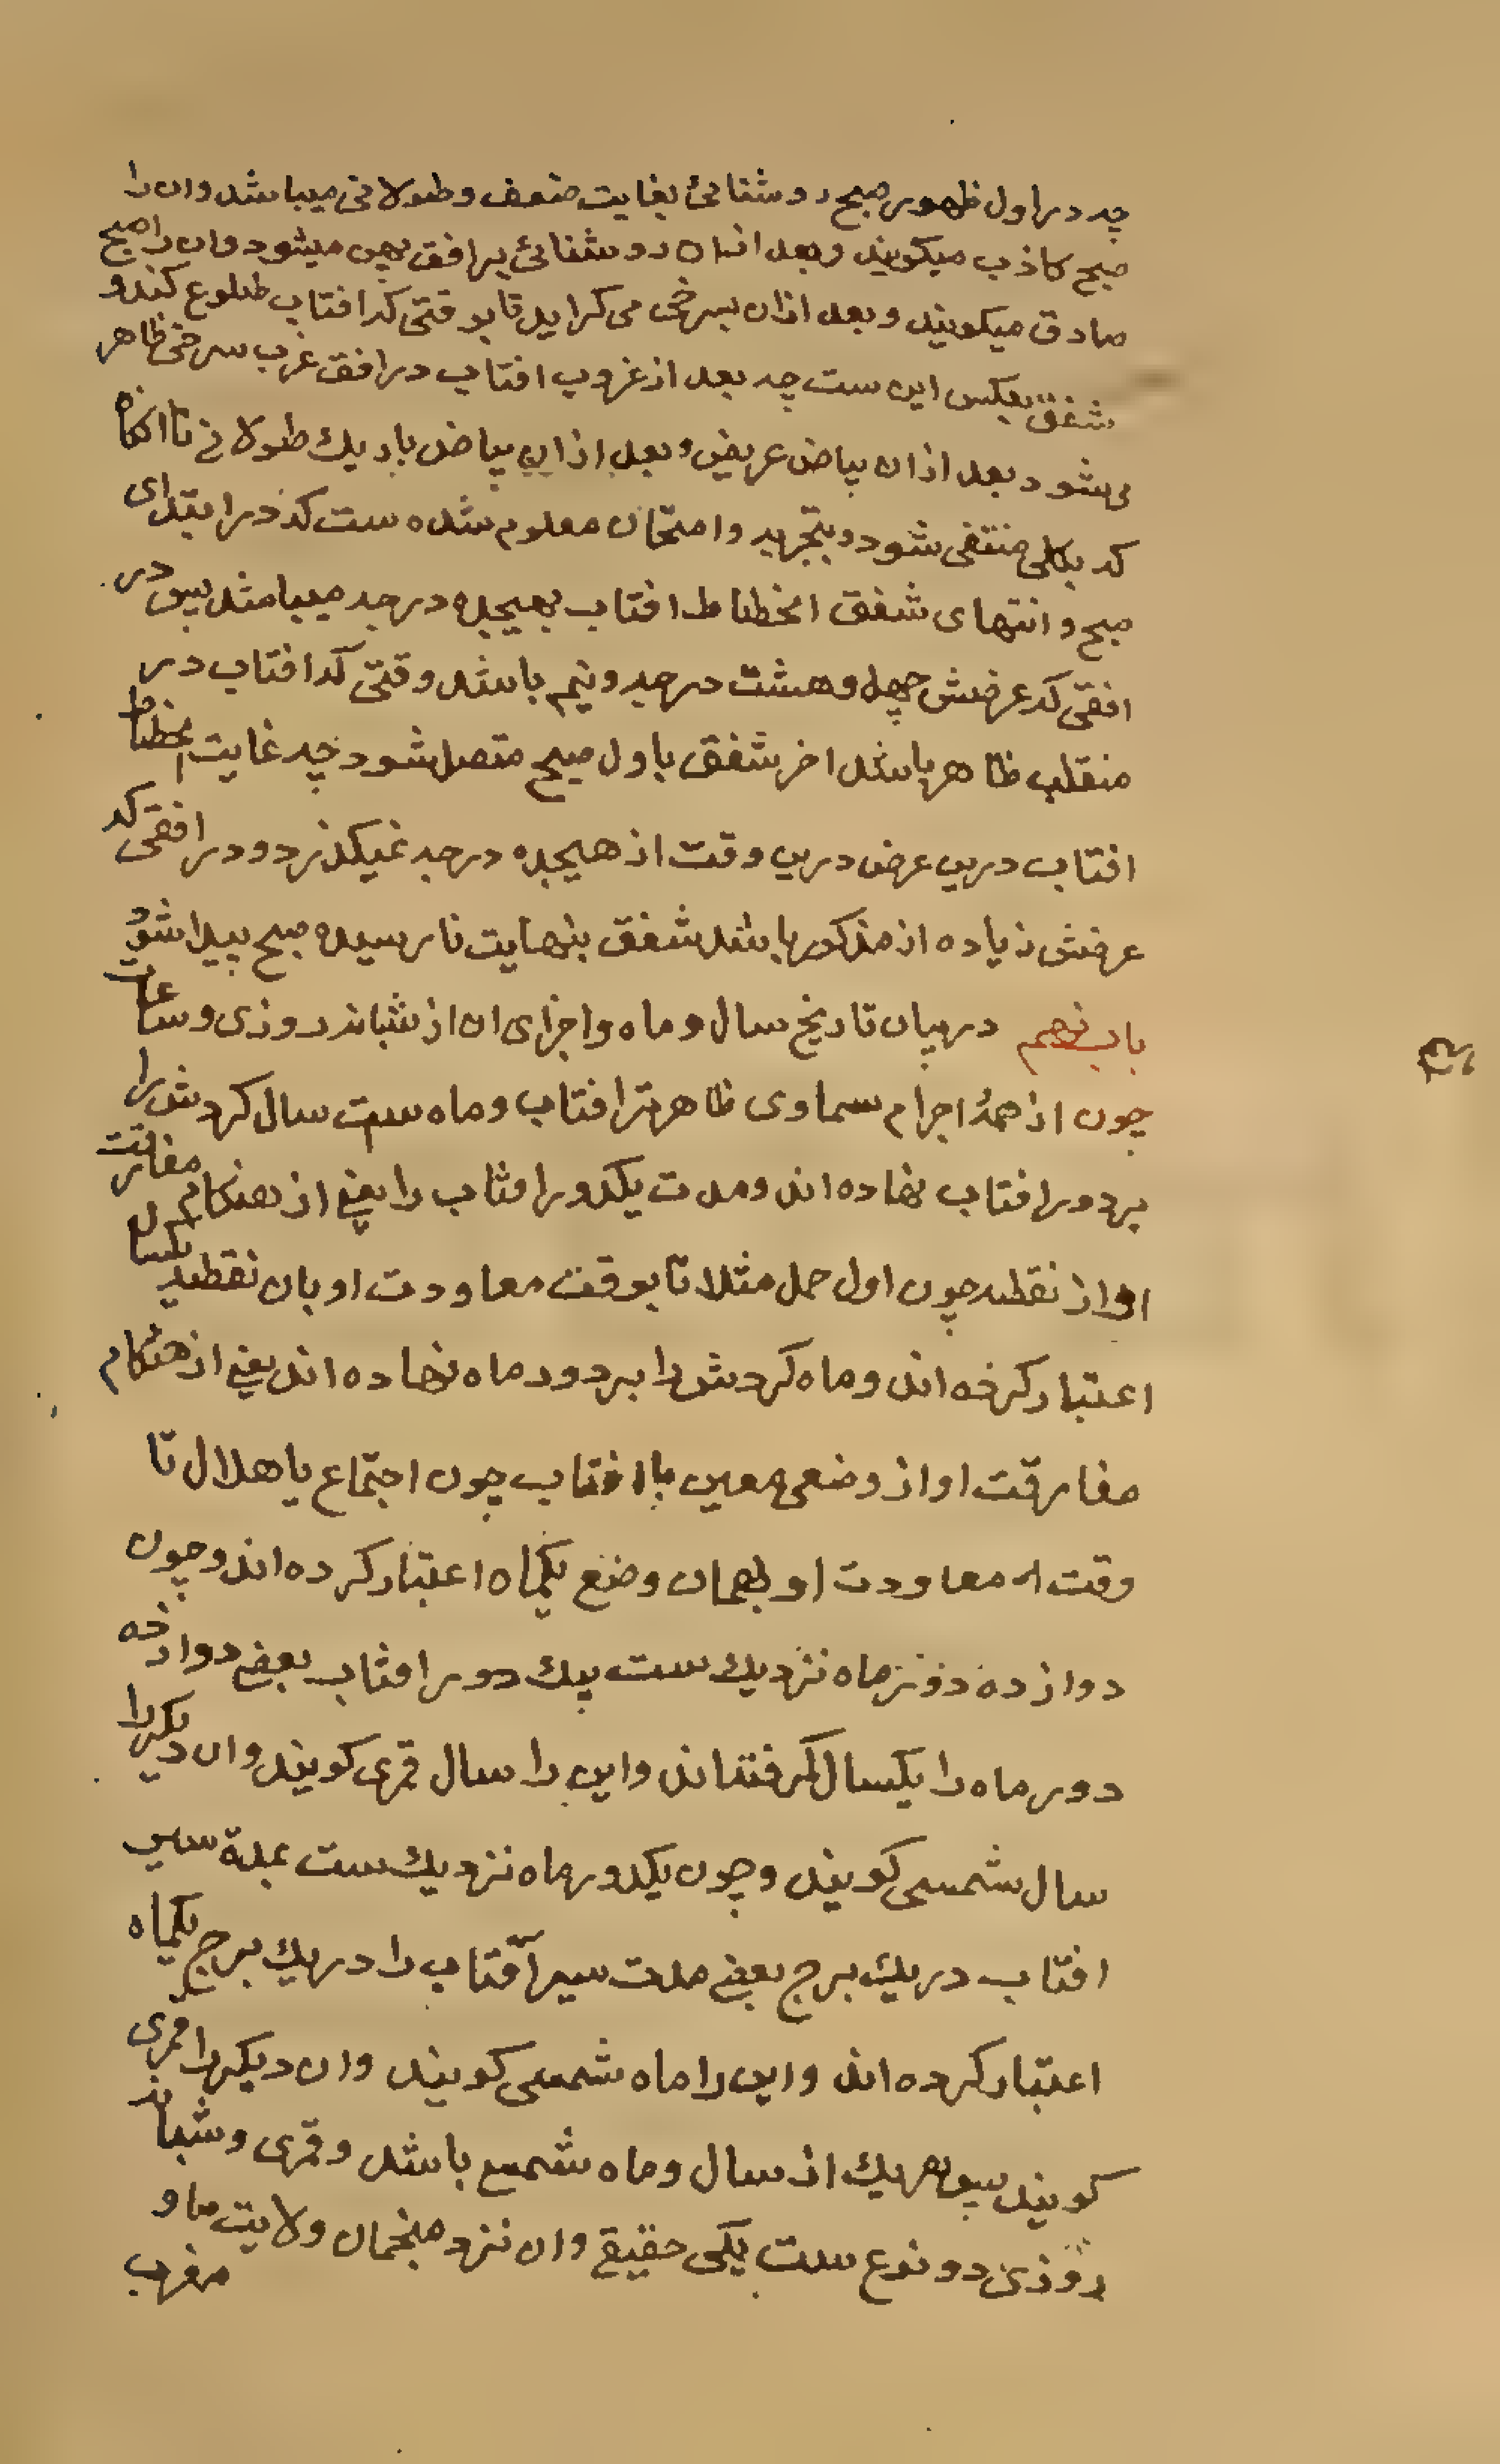 چه در اول ظهور صبح روشنائی بغایت ضعف و طولانی میباشد وان را
صبح کاذب میکویند و بعد ازان روشنائی بر افق پهن میشود وان را صبح
صادق میکویند و بعد ازان بسرخی می کراید تا بوقتی که افتاب طلوع کند و
شفق بعکس این ست چه بعد از غروب افتاب در افق غرب سرخی ظاهر
می شود بعد ازان بیاض عریض و بعد ازان بیاض باریك طولانی تا انکاه
که بکلی منتفی شود و بتجربه و امتحان معلوم شده ست که در ابتدای
صبح و انتهای شفق انحطاط افتاب بهیجده درجه میباشد پس در
افقی که عرضش چهل و هشت درجه و نیم باشد وقتی که افتاب در
منقلب ظاهر باشد اخر شفق باول صبح متصل شود چه غایت انحطاط
افتاب درین عرض درین وقت از هیجده درجه نمیکذرد و در افقی که
عرضش زیاده از مذکور باشد شفق بنهایت نارسیده صبح پیدا شود
باب نهم در بیان تاریخ سال و ماه و اجزای ان از شبانه روزی و ساعات
چون از همهٔ اجرام سماوی ظاهرتر افتاب و ماه ست سال کردش را
بر دور افتاب نهاده اند و مدت یکدور افتاب را یعنی از هنکام مفارقت
او از نقطه چون اول حمل مثلا تا بوقت معاودت او بان نقطه یکسال
اعتبار کرده اند و ماه کردش را بر دور ماه نهاده اند یعنی از هنکام
مفارقت او از وضعی معین با افتاب چون اجتماع یا هلال تا
وقت معاودت او بهمان وضع یکماه اعتبار کرده اند و چون
دوازده دور ماه نزدیك ست بیك دور افتاب بعضی دوازده
دور ماه را یکسال کرفته اند و این را سال قمری کویند وان دیکر را
سال شمسی کویند و چون یکدور ماه نزدیك ست بمدة سیر
افتاب در یك برج بعضی مدت سیر آفتاب را در یك برج یکماه
اعتبار کرده اند و این را ماه شمسی کویند وان دیکر را قمری
کویند پس هر یك از سال و ماه شمسی باشد و قمری و شبانه
روزی دو نوع ست یکی حقیقی وان نزد منجمان ولایت ما و
مغرب